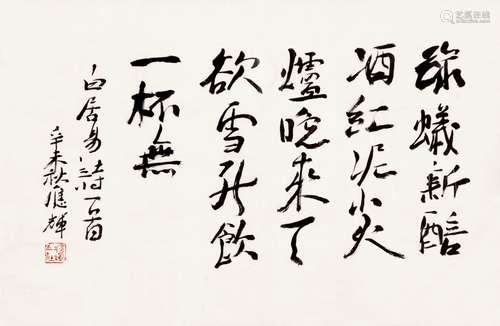 綠蟻新醅
酒紅泥小火
爐晚來天
欲雪能飲
一杯無
白居易詩一首
辛未秋應輝
艺狐在线